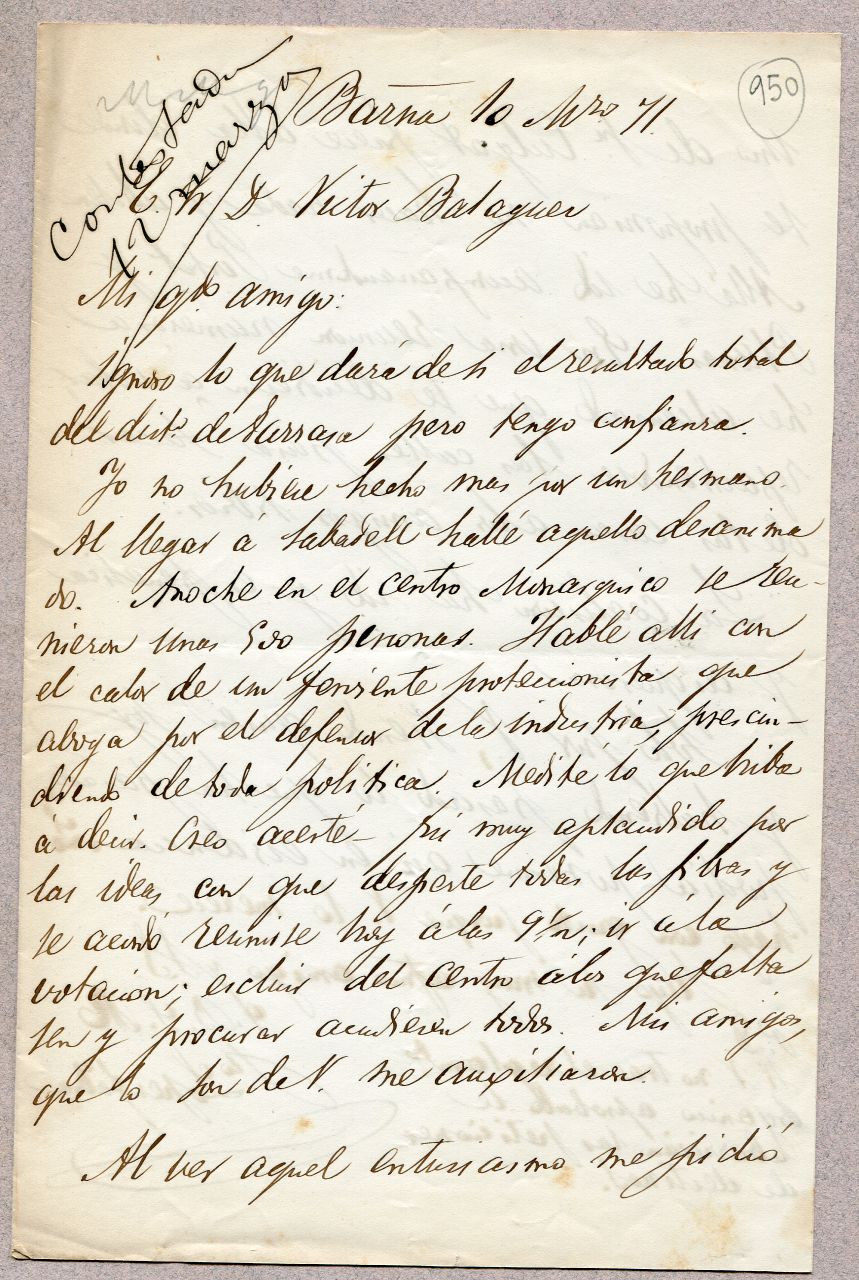 950
Contestada
12 marzo
Barna 10 Mzo 71.
E. Sr D. Victor Balaguer
Mi qdo amigo:
Ignoro lo que dará de si el resultado total
del dist.o de Tarrasa pero tengo confianza.
Yo no hubiese hecho mas por un hermano.
Al llegar á Sabadell hallé aquello desanima
do. Anoche en el centro Monarquico se reu-
nieron unas 500 personas. Hablé alli con
el calor de un ferviente proteccionista que
aboga por el defensor de la industria, prescin-
diendo de toda politica. Medité lo que hiba
á decir. Creo acerté - Fui muy aplaudido por
las ideas con que desperte todas las fibras y
se acordó reunirse hoy á las 9 1/2; ir á la
votacion; escluir del centro á los que falta
sen y procurar acudiesen todos. Mis amigos,
que lo son de V. me auxiliaron.
Al ver aquel entusiasmo me pidió